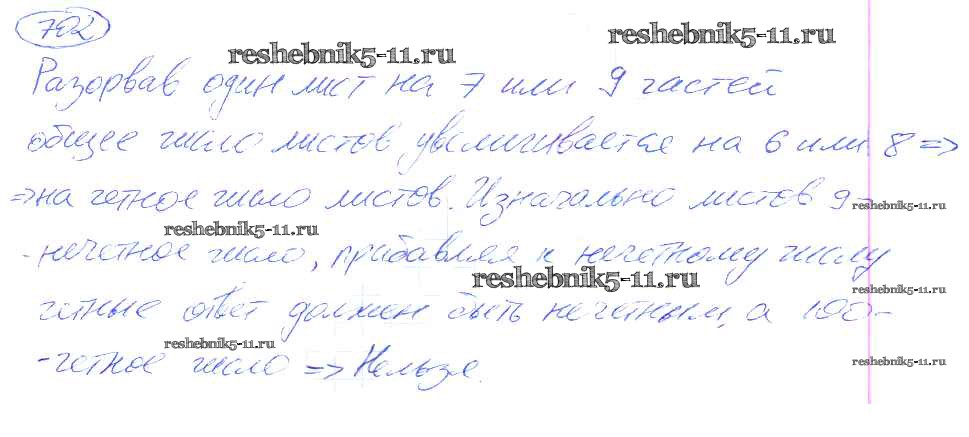 702
reshebnik5-11.ru
reshebnik5-11.ru
Разорвав один лист на 7 или 9 частей
общее число листов увеличивается на 6 или 8 =>
=> на четное число листов. Изначально листов 9-
reshebnik5-11.ru
reshebnik5-11.ru
- нечетное число, прибавляя к нечетному числу
reshebnik5-11.ru
reshebnik5-11.ru
четные ответ должен быть нечетным, а 100-
reshebnik5-11.ru
- четное число => Нельзя.
reshebnik5-11.ru